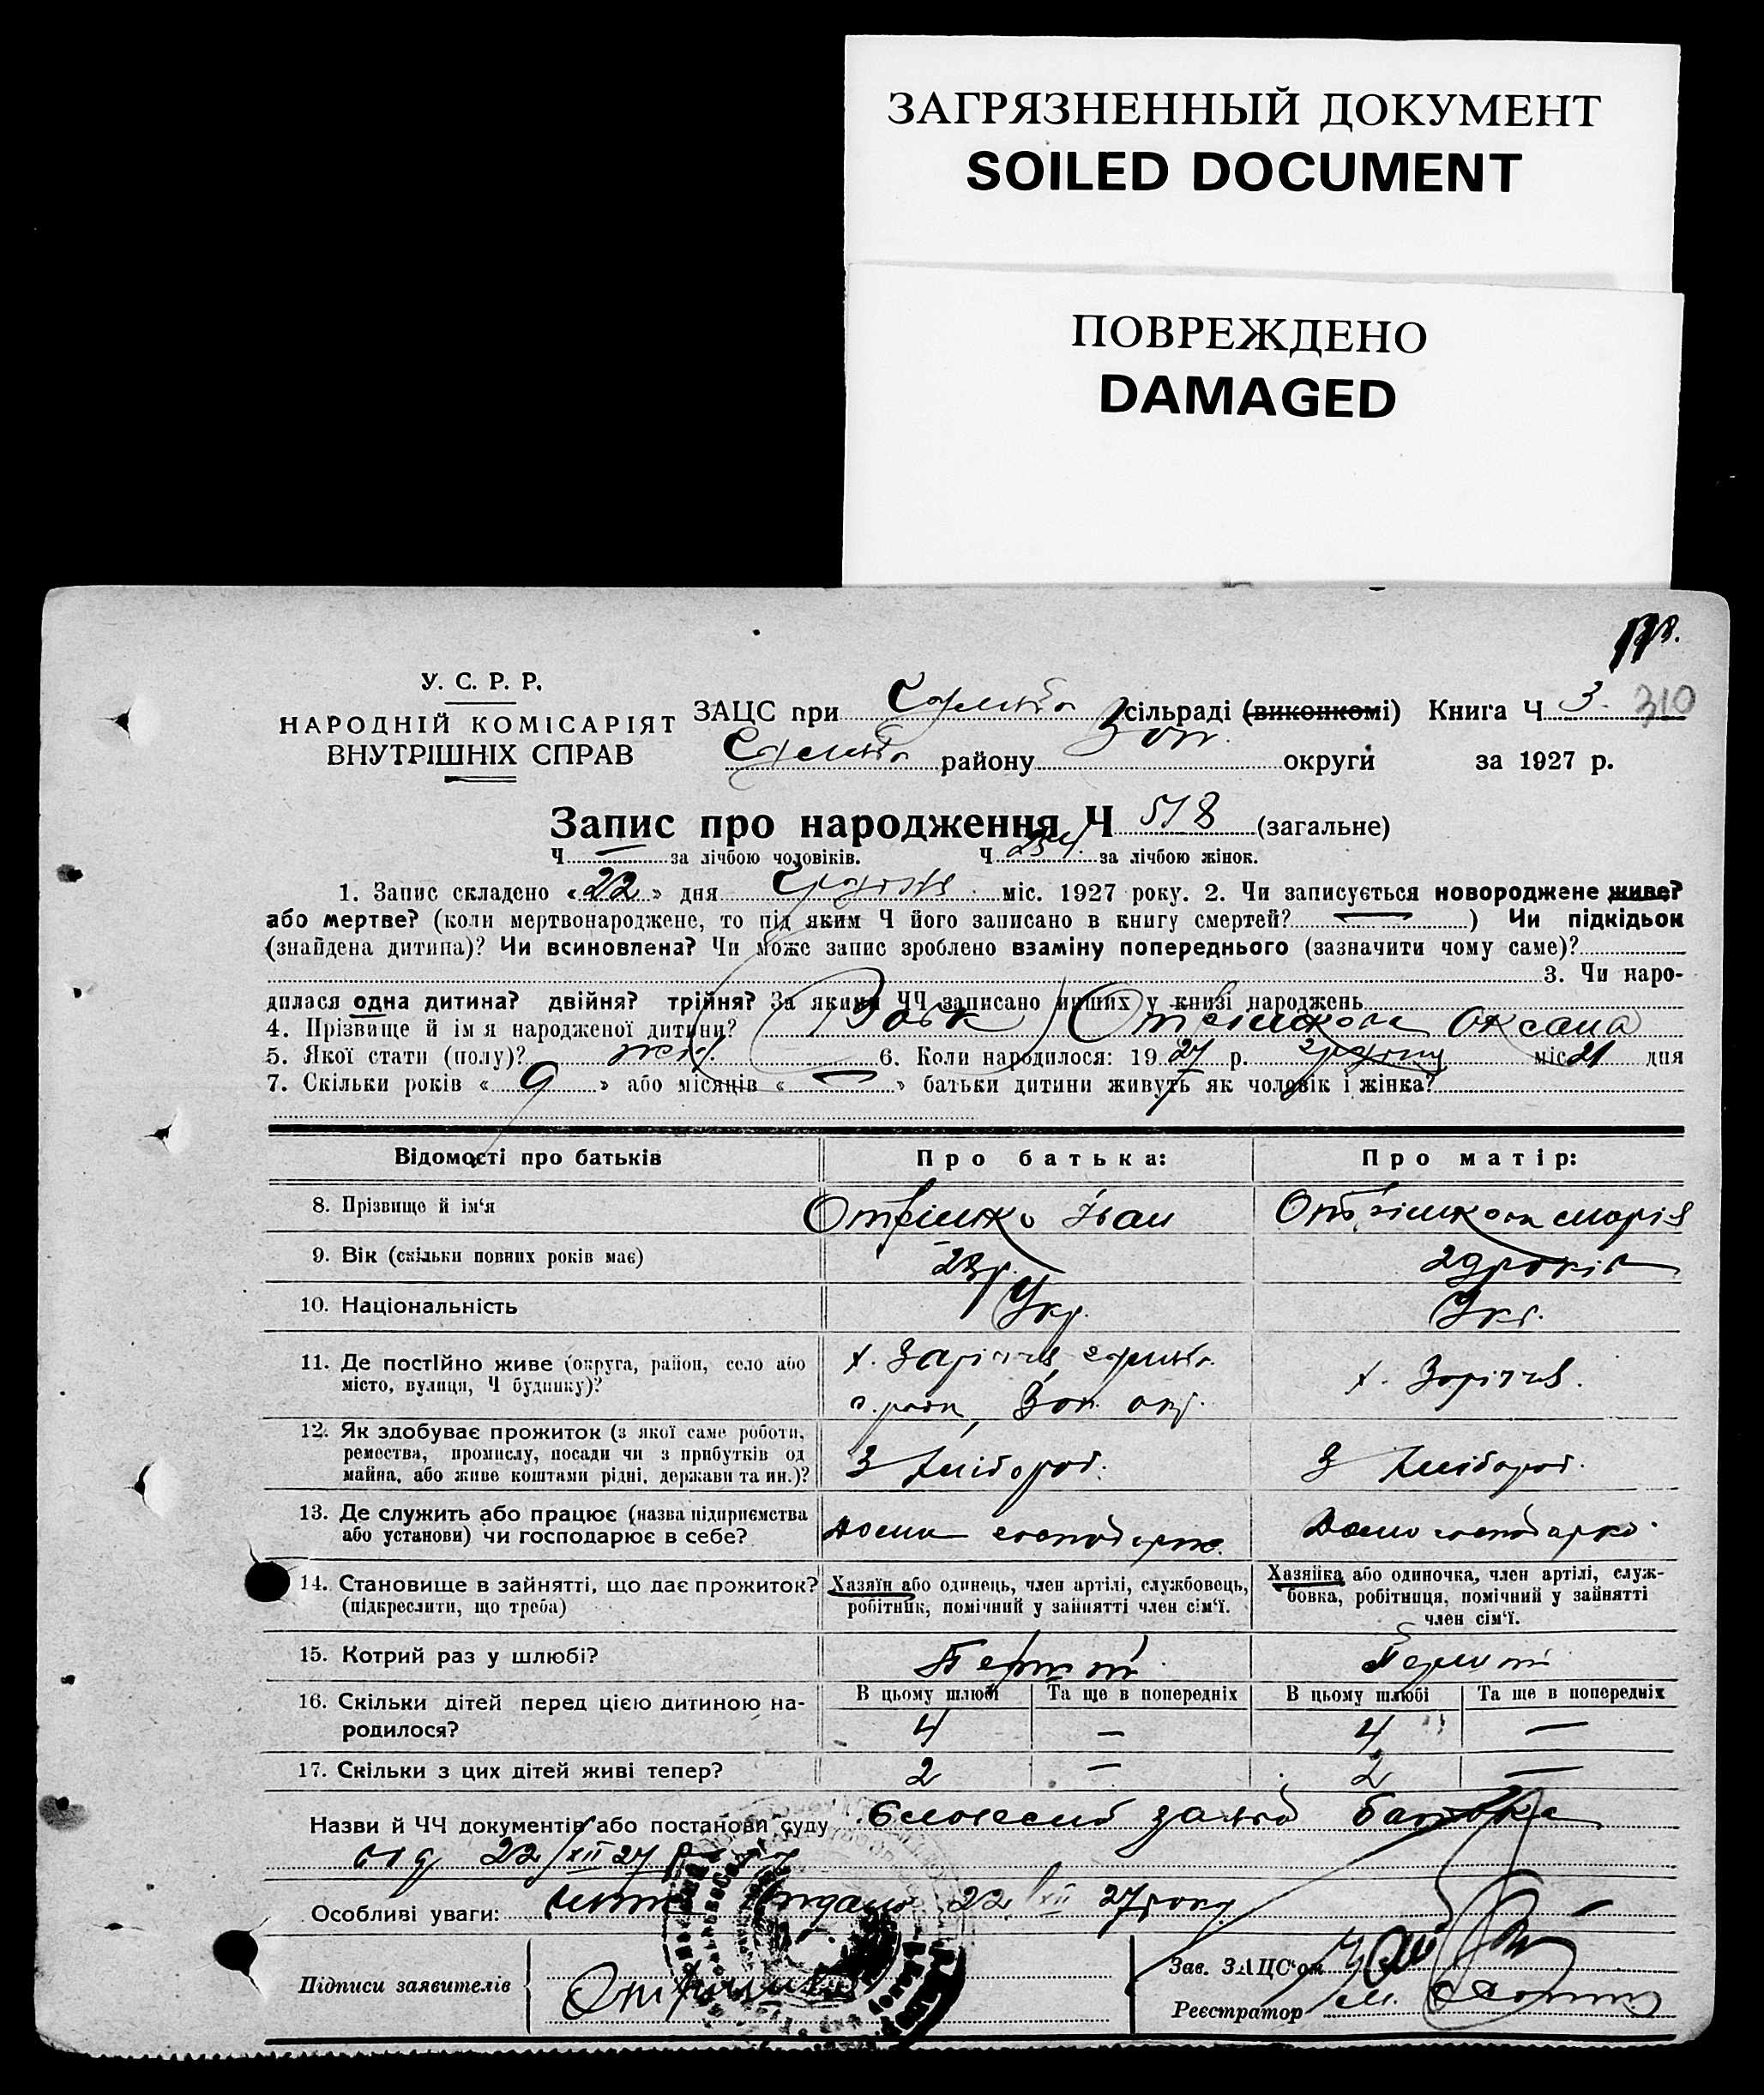 ЗАГРЯЗНЕННЫЙ ДОКУМЕНТ
SOILED DOCUMENT
ПОВРЕЖДЕНО
DAMAGED
У. С. Р. Р.
НАРОДНІЙ КОМІСАРІЯТ
ВНУТРІШНІХ СПРАВ
ЗАЦС при сільраді (виконкомі) Книга Ч 3. 310
району округи за 1927 р.
Запис про народження Ч 518 (загальне)
Ч — за лічбою чоловіків. Ч 254 за лічбою жінок.
1. Запис складено «22» дня Грудня міс. 1927 року. 2. Чи записується новороджене живе?
або мертве? (коли мертвонароджене, то під яким Ч його записано в книгу смертей? — ) Чи підкідьок
(знайдена дитина)? Чи всиновлена? Чи може запис зроблено взаміну попереднього (зазначити чому саме)?
3. Чи наро-
дилася одна дитина? двійня? трійня? За якими ЧЧ записано инших у книзі народжень
4. Прізвище й ім'я народженої дитини? Оксана
5. Якої стати (полу)? жін. 6. Коли народилося: 1927 р. грудня міс 21 дня
7. Скільки років «9» або місяців « — » батьки дитини живуть як чоловік і жінка?
Відомості про батьків Про батька: Про матір:
8. Прізвище й ім'я Отрішко Іван Отрішкова Марія
9. Вік (скільки повних років має) 28р. 29 років
10. Національність Укр. Укр.
11. Де постійно живе (округа, район, село або
місто, вулиця, Ч будинку)? х. Заріччя х. Заріччя.
12. Як здобуває прожиток (з якої саме роботи,
ремества, промислу, посади чи з прибутків од
майна, або живе коштами рідні, держави та ин.)? З хлібороб. З хлібороб.
13. Де служить або працює (назва підприємства
або установи) чи господарює в себе?
14. Становище в зайнятті, що дає прожиток?
(підкреслити, що треба)
Хазяїн або одинець, член артілі, службовець,
робітник, помічний у зайнятті член сім'ї.
Хазяйка або одиночка, член артілі, служ-
бовка, робітниця, помічний у зайнятті
член сім'ї.
15. Котрий раз у шлюбі? Перший Перший
16. Скільки дітей перед цією дитиною на-
родилося?
В цьому шлюбі Та ще в попередніх В цьому шлюбі Та ще в попередніх
4 — 4 —
17. Скільки з цих дітей живі тепер? 2 — 2 —
Назви й ЧЧ документів або постанови суду Словесна заява батька
від 22/XII 27 р.
Особливі уваги: видано 22/XII 27 року
Підписи заявителів Отрішко
Зав. ЗАЦС'ом
Реєстратор